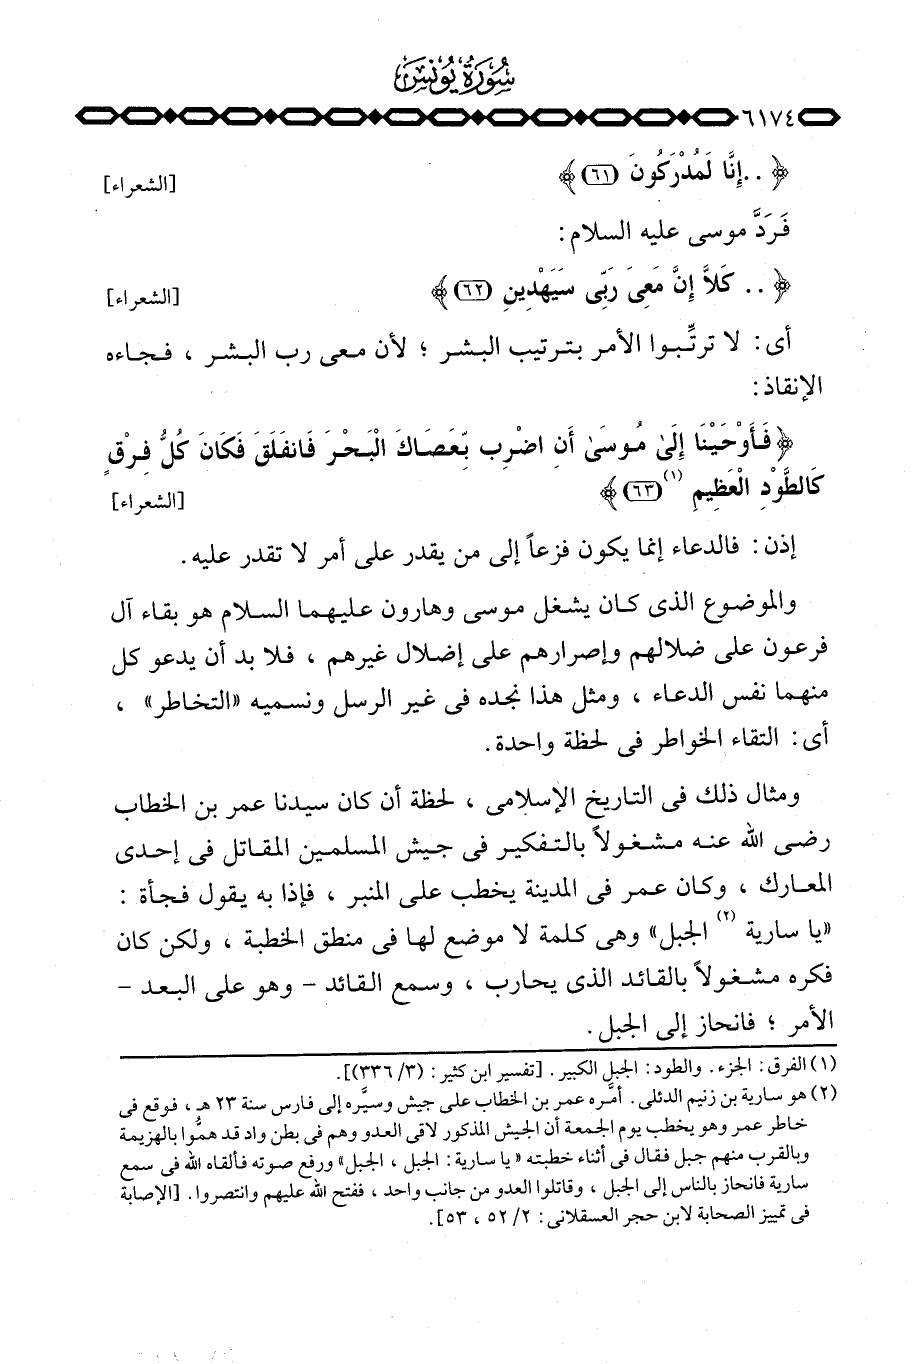 سُورَةُ يُونُسَ
٦١٧٤
﴿ .. إِنَّا لَمُدْرَكُونَ (٦١) ﴾ [الشعراء]
فَرَدَّ موسى عليه السلام :
﴿ .. كَلاَّ إِنَّ مَعِيَ رَبِّي سَيَهْدِينِ (٦٢) ﴾ [الشعراء]
أى : لا ترتِّبوا الأمر بترتيب البشر ؛ لأن معى رب البشر ، فجاءه
الإنقاذ :
﴿ فَأَوْحَيْنَا إِلَىٰ مُوسَىٰ أَنِ اضْرِب بِّعَصَاكَ الْبَحْرَ فَانفَلَقَ فَكَانَ كُلُّ فِرْقٍ
كَالطَّوْدِ الْعَظِيمِ (١) (٦٣) ﴾ [الشعراء]
إذن : فالدعاء إنما يكون فزعاً إلى من يقدر على أمر لا تقدر عليه .
والموضوع الذى كان يشغل موسى وهارون عليهما السلام هو بقاء آل
فرعون على ضلالهم وإصرارهم على إضلال غيرهم ، فلا بد أن يدعو كل
منهما نفس الدعاء ، ومثل هذا نجده فى غير الرسل ونسميه «التخاطر» ،
أى : التقاء الخواطر فى لحظة واحدة .
ومثال ذلك فى التاريخ الإسلامى ، لحظة أن كان سيدنا عمر بن الخطاب
رضى الله عنه مشغولاً بالتفكير فى جيش المسلمين المقاتل فى إحدى
المعارك ، وكان عمر فى المدينة يخطب على المنبر ، فإذا به يقول فجأة :
«يا سارية (٢) الجبل» وهى كلمة لا موضع لها فى منطق الخطبة ، ولكن كان
فكره مشغولاً بالقائد الذى يحارب ، وسمع القائد - وهو على البعد -
الأمر ؛ فانحاز إلى الجبل .
(١) الفرق : الجزء . والطود : الجبل الكبير . [تفسير ابن كثير : (٣/ ٣٣٦)] .
(٢) هو سارية بن زنيم الدئلى . أمَّره عمر بن الخطاب على جيش وسيَّره إلى فارس سنة ٢٣ هـ ، فوقع فى
خاطر عمر وهو يخطب يوم الجمعة أن الجيش المذكور لاقى العدو وهم فى بطن واد قد همُّوا بالهزيمة
وبالقرب منهم جبل فقال فى أثناء خطبته « يا سارية : الجبل ، الجبل» ورفع صوته فألقاه الله فى سمع
سارية فانحاز بالناس إلى الجبل ، وقاتلوا العدو من جانب واحد ، ففتح الله عليهم وانتصروا . [الإصابة
فى تمييز الصحابة لابن حجر العسقلانى : ٢/ ٥٢ ، ٥٣] .